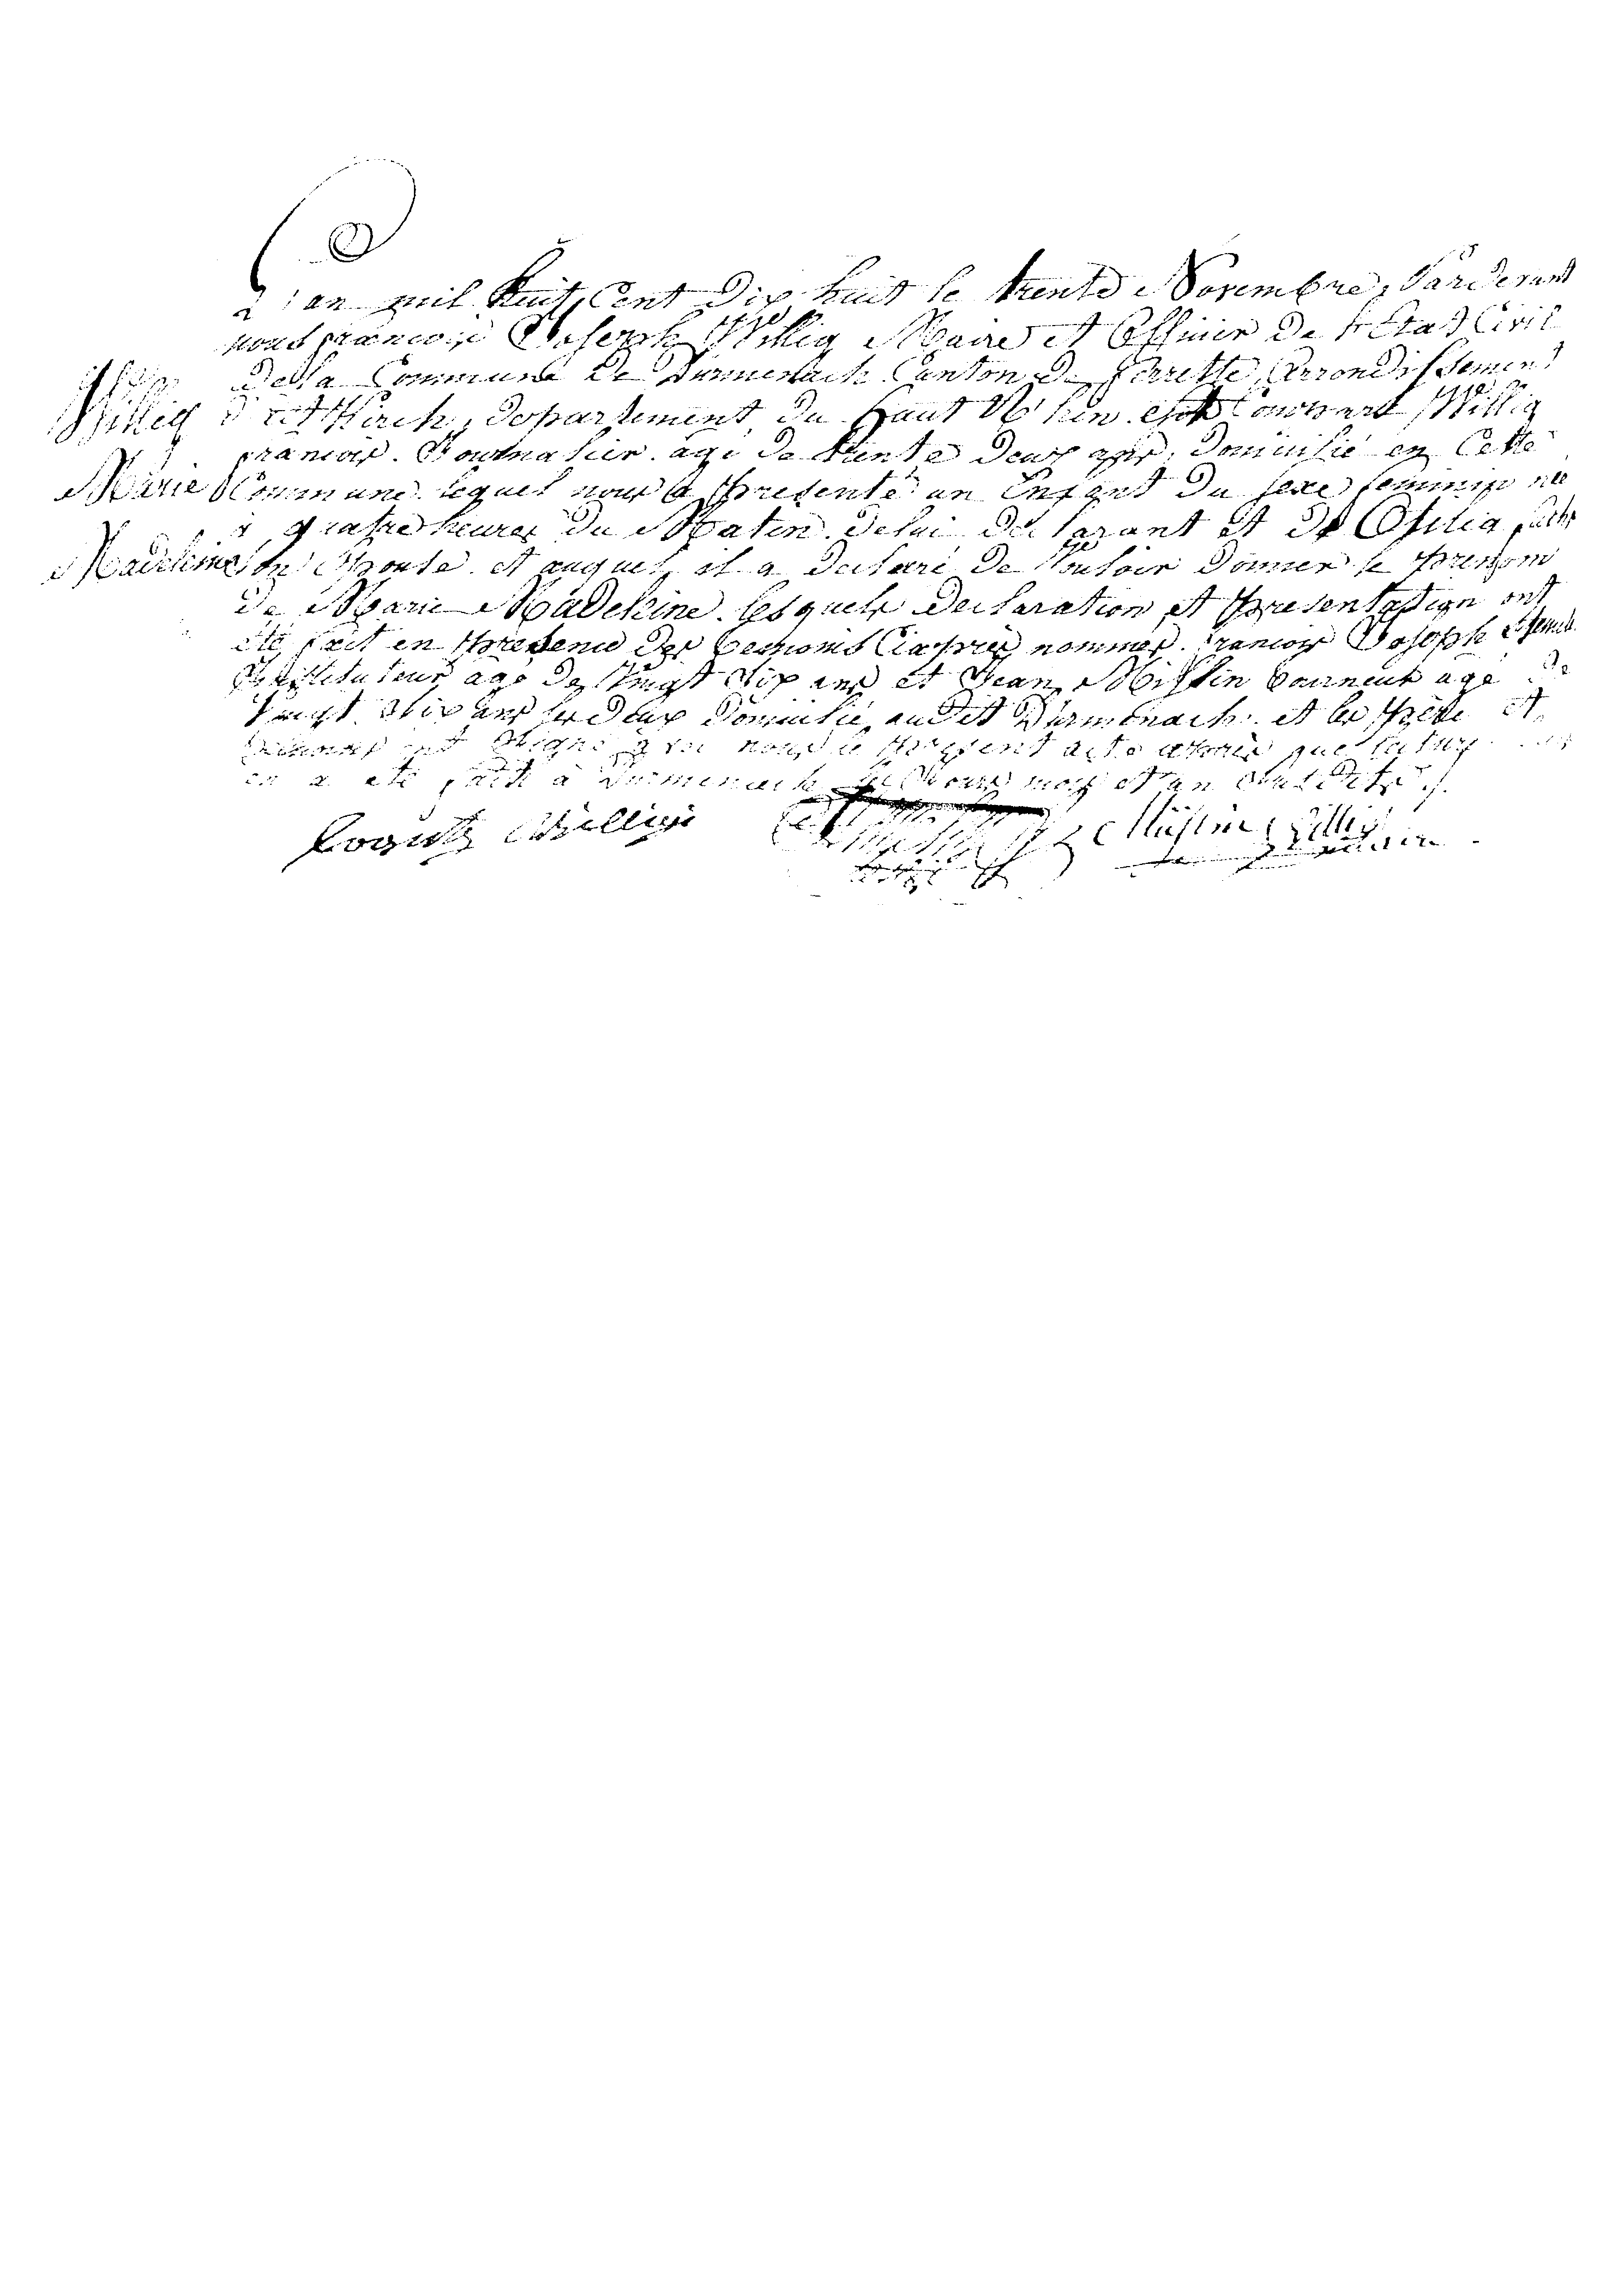 L'an mil huit Cent dix huit le trente Novembre, Pardevant
nous francois Joseph Willig Maire et Officier de l'Etat Civil
della Commune de Durmenach Canton de ferrette, Arrondissement
Willig d'Altkirch, departement du haut Rhin est Willig
francois. Journalier. agé de trente deux ans, domicilié en Cette
Marie Commune lequel nous a presenté un Enfant du sexe feminin née
a quatre heures du Matin. de lui declarant et de Otilia
Madeleine son Epouse. et auquel il a declaré de Vouloir donner le prenom
de Marie Madeleine. lesquels declaration et presentation ont
été fait en presence des temoins Ciapres nommes. francois Joseph
Instituteur agé de Vingt Six ans et Jean Mislin tourneur agé de
Vingt Six ans les deux domicilié audit Durmenach. et les Père et
temoins ont Signé avec nous le present acte apres que lecture
en a été fait à Durmenach les Jour mois et an Susdits ./.
Willig Mislin Willig